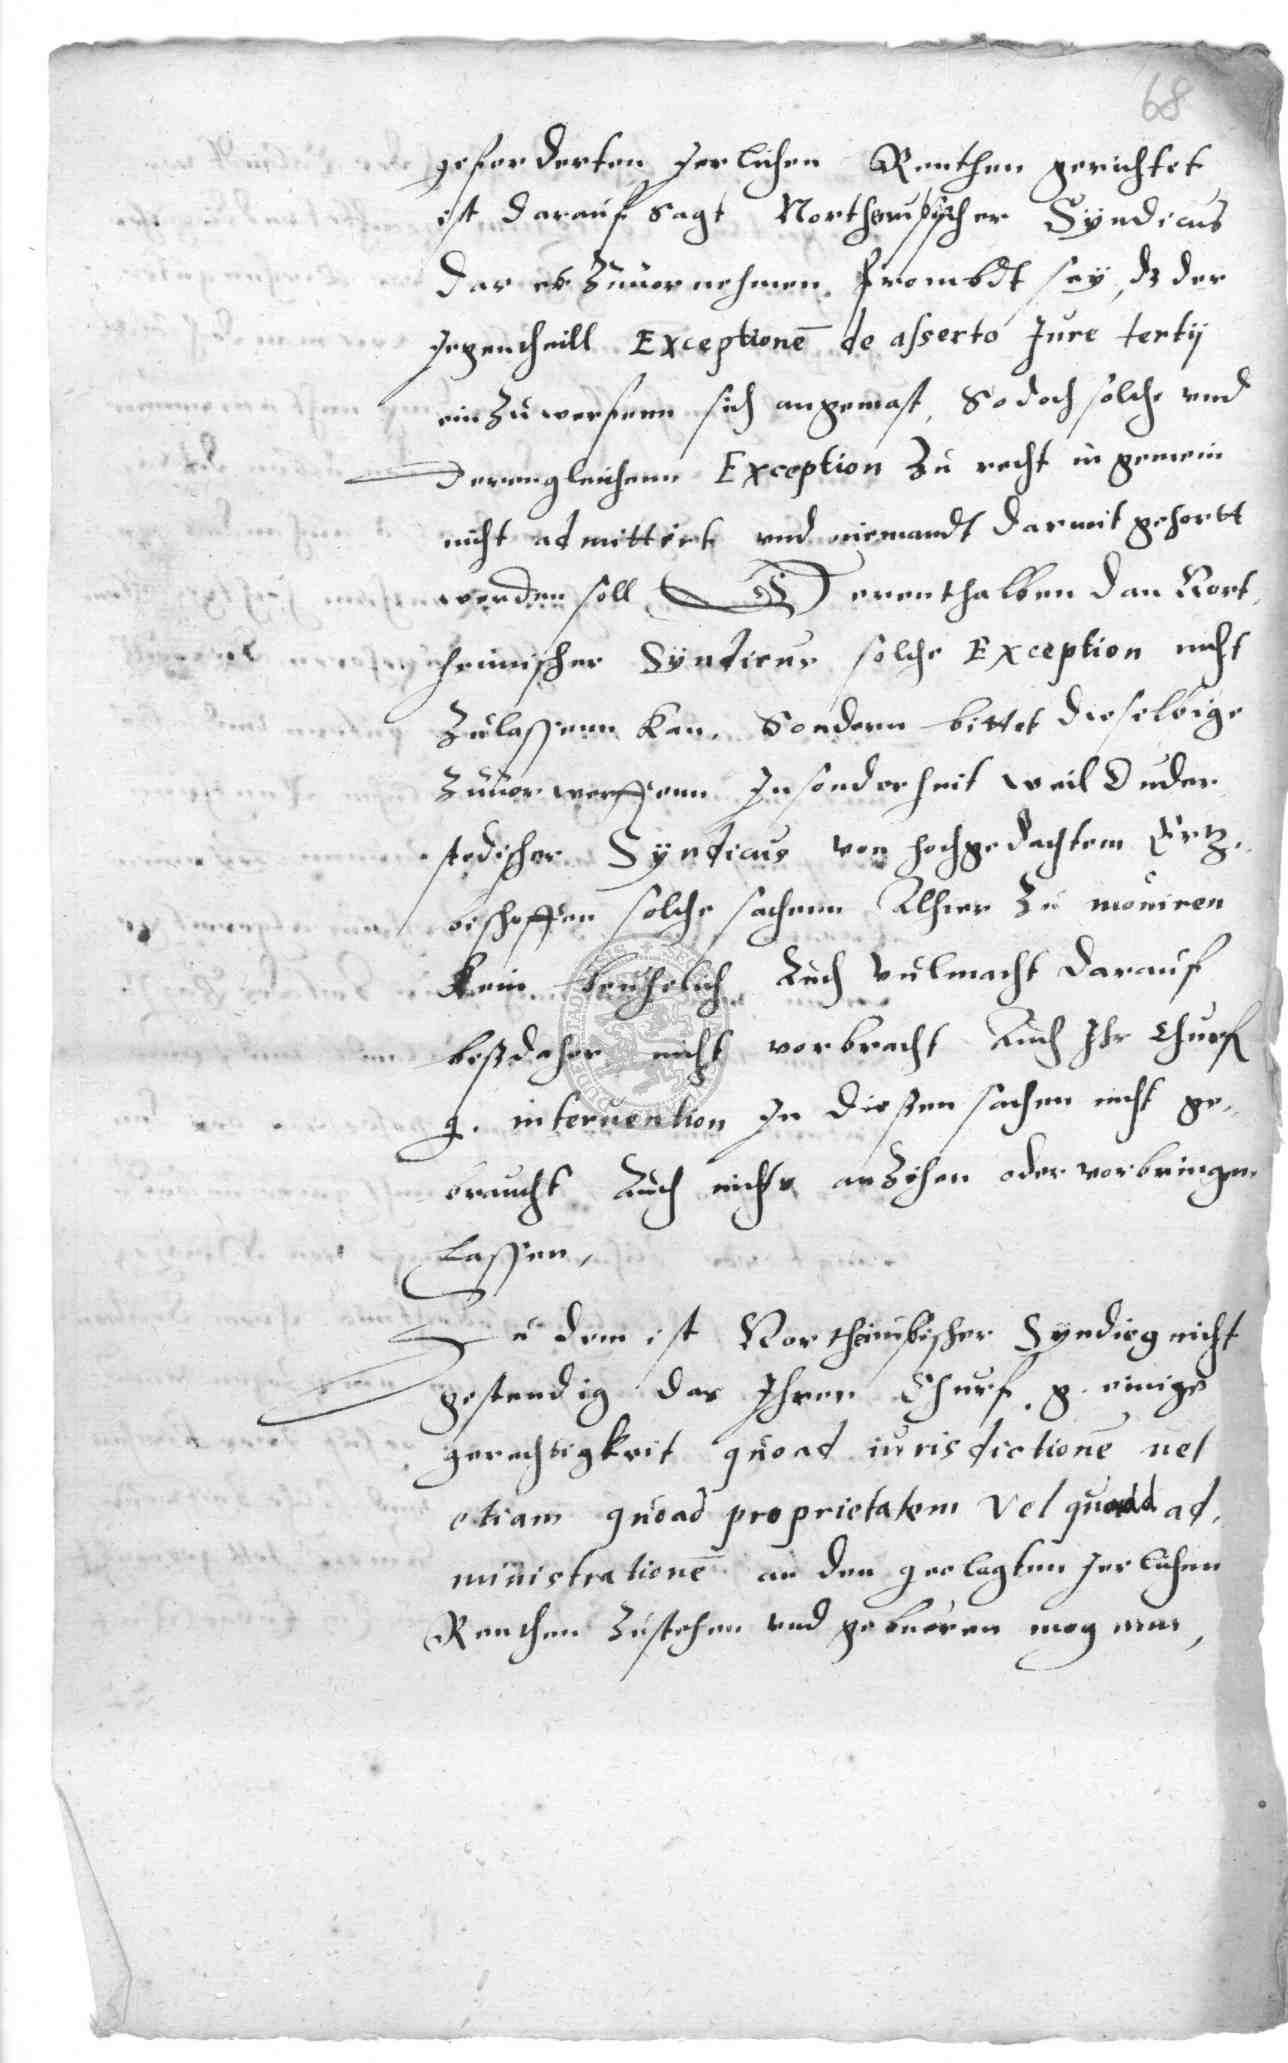 68
geforderten Jerlichen Renthen gerichtet
ist darauf sagt Northeimischer Syndicus
das es Zuuornehmen frombdt sey, dz der
Jegentheill Exceptionē de asserto Jure tertij
ein Zuwerfenn sich angemast, So doch solche vnd
derengleichenn Exception Zu recht in gemein
nicht admittirt vnd niemandt darmit gehortt
werden soll Derenthalben dan Nort,
heimischer Syndicus solche Exception nicht
Zulassenn kan, Sondern bittet dieselbige
Zuuorwerffenn Insonderheit weil Duder
stedischer Syndicus von hochgedachtem Ertz-
bischoffen solche sachenn Alhier Zu mouiren
kein Auch Vulmacht darauf
bißdaher nicht vorbracht Auch Ihr Churf
g. interuention In diessen sachen nicht ge-
braucht Auch nichts anZihen oder vorbringen
Lassen,
Zu dem ist Northeimischer Syndicg nicht
gestendig das Ihren Churf. g. einige
gerechtigkeit quoad iurisdictionē uel
etiam quoad proprietatem Vel quoad ad,
ministrationē an den geclagten Jerlichen
Renthen Zustehen vnd gebueren mog